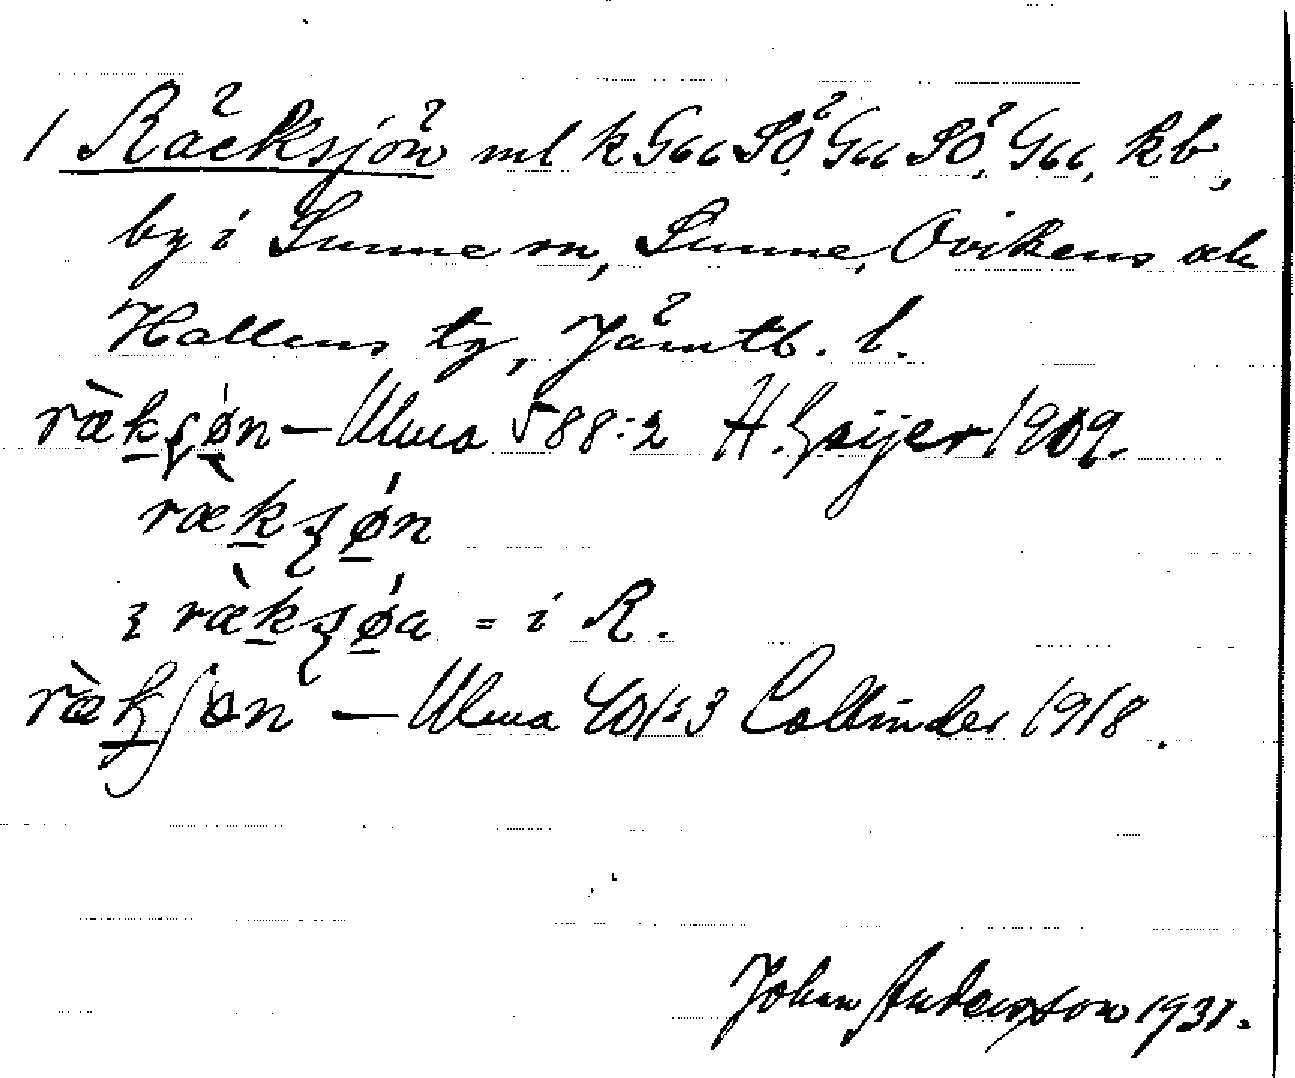 1 Räcksjön ml k G66 SÖ, G66 SÖ, G66, kb,
by i Sunne sn, Sunne, Ovikens och
Hallens tg, Jämtl. l.
ræ̀kʂøn – Ulma 588:2 H. Geijer 1909.
ræ̀kʂøn
ræ̀kʂøa = i R.
ræ̀kʃøn – Ulma 401:3 Collinder 1918.
John Andersson 1931.